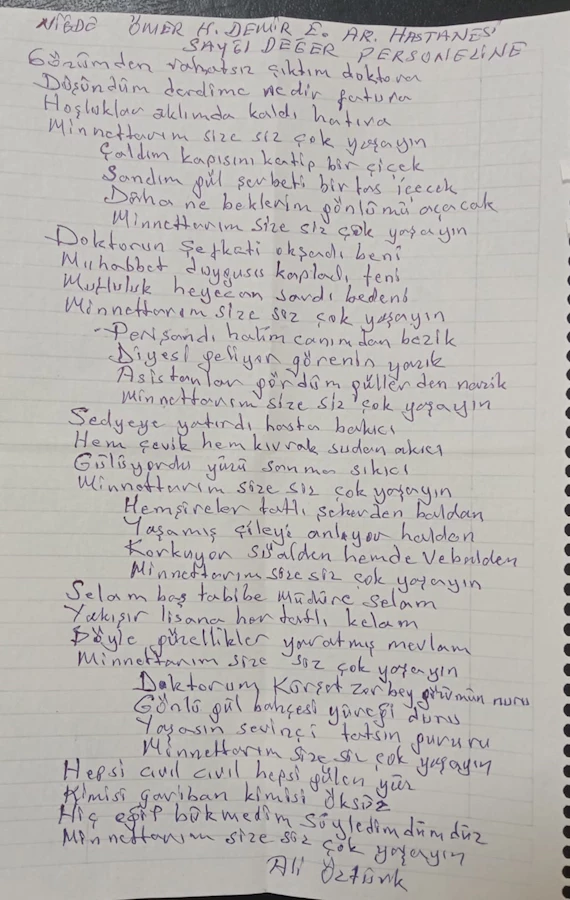 NİĞDE ÖMER H. DEMİR E. AR. HASTANESİ
SAYGI DEĞER PERSONELİNE
Gözümden rahatsız çıktım doktora
Düşündüm derdime nedir fatura
Hoşluklar aklımda kaldı hatıra
Minnettarım size siz çok yaşayın
Çaldım kapısını katip bir çiçek
Sandım gül şerbeti bir tas içecek
Daha ne beklerim gönlümü açacak
Minnettarım size siz çok yaşayın
Doktorun şefkati okşadı beni
Muhabbet duygusu kapladı teni
Mutluluk heyecan sardı bedeni
Minnettarım size siz çok yaşayın
Perişandı halim canımdan bezik
Diyesi geliyor görenin yazık
Asistanlar gördüm güllerden nazik
Minnettarım size siz çok yaşayın
Sedyeye yatırdı hasta bakıcı
Hem çevik hem kıvrak sudan akıcı
Gülüyordu yüzü sanma sıkıcı
Minnettarım size siz çok yaşayın
Hemşireler tatlı şekerden baldan
Yaşamış çileyi anlıyor haldan
Korkuyor süalden hemde Vebalden
Minnettarım size siz çok yaşayın
Selam baş tabibe müdüre selam
Yakışır lisana her tatlı kelam
Böyle güzellikler yaratmış mevlam
Minnettarım size siz çok yaşayın
Doktorum Kürşat Zor bey gözümün nuru
Gönlü gül bahçesi yüreği duru
Yaşasın sevinçi tatsın gururu
Minnettarım size siz çok yaşayın
Hepsi cıvıl cıvıl hepsi gülen yüz
Kimisi gariban kimisi öksüz
Hiç eğip bükmedim söyledim düm düz
Minnettarım size siz çok yaşayın
Ali Öztürk